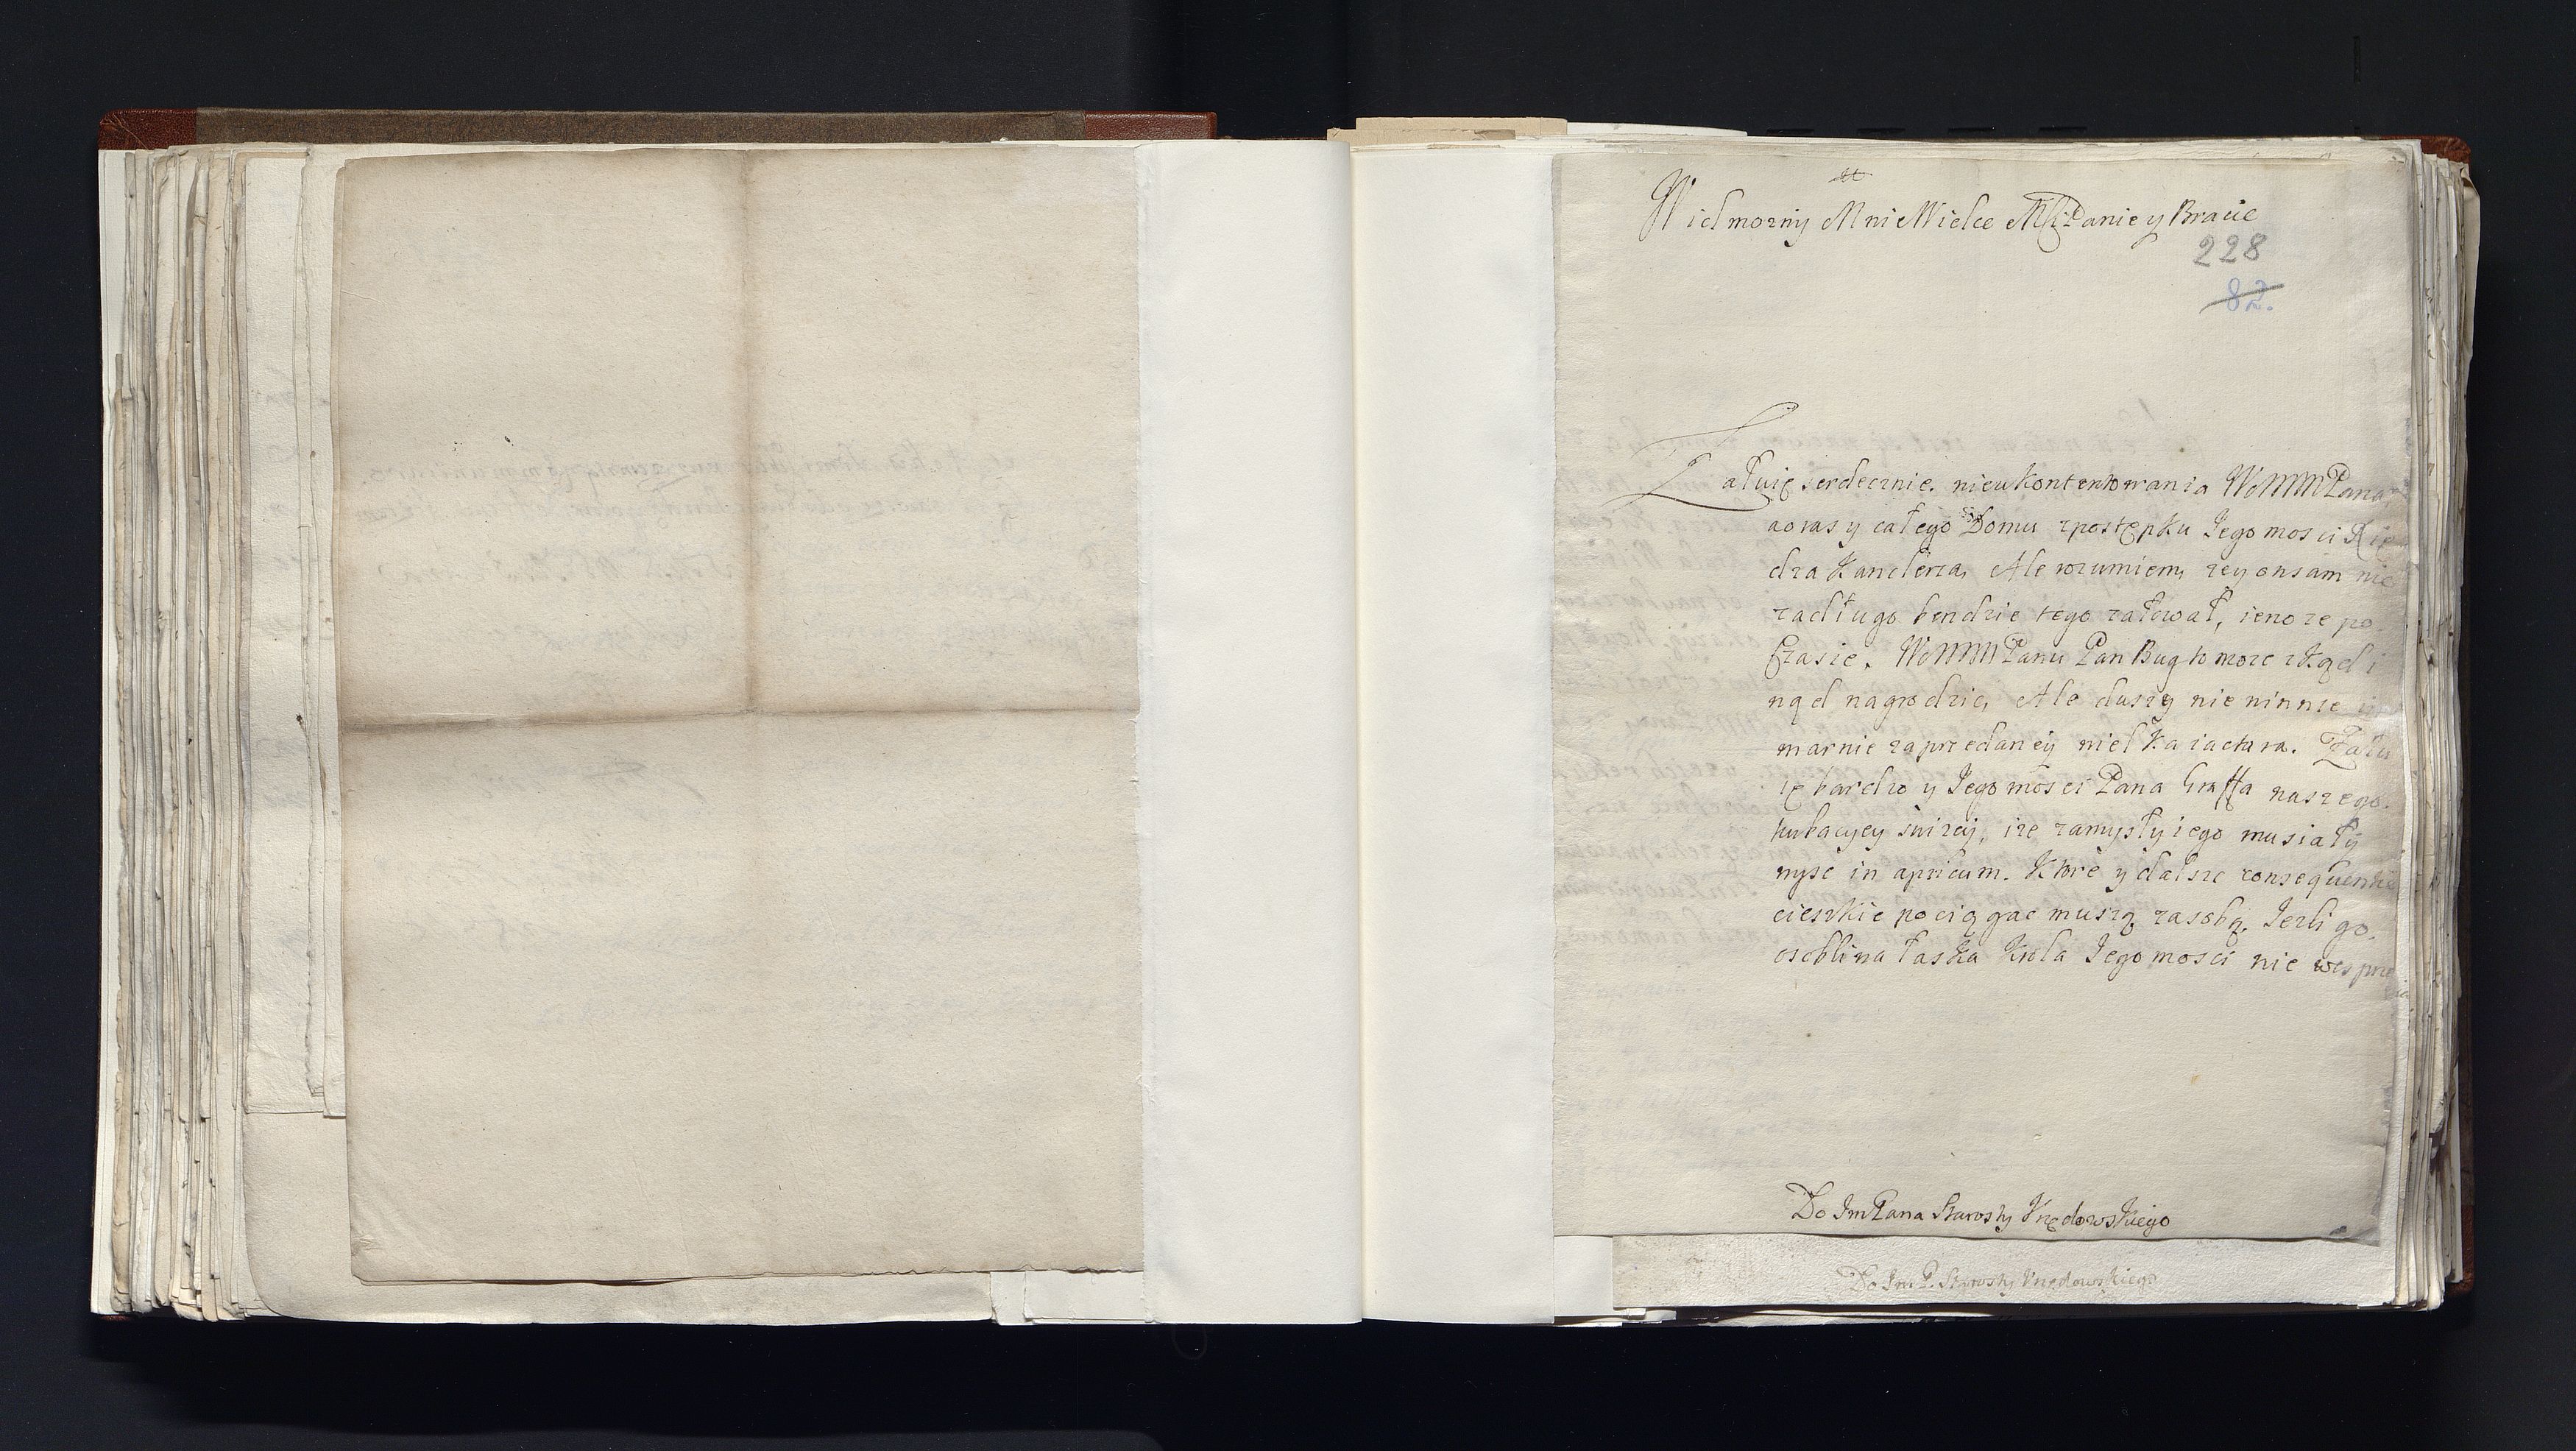 Wielmozny Mnie Wielce Mści Panie y Bracie
228
82.
Załuię serdecznie nieukontentowania WoMMMPana,
aoras y całego Domu zpostępku Iego mosci Xię
dza Kanclerza, Ale rozumiem, zey onsam nie
zadługo bendzie tego załował, ieno ze po
czasie. WoMMMPanu Pan Bug to moze zkąd i
nąd nagrodzic, Ale duszy nie winnie
marnie zaprzedaneÿ wielka iactura. Zału
ię bardzo y Iego mosci Pana Graffa naszego
ze zamysły iego musiały
wyść in apricum. Ktore y dalsze consequentie
cieszkie pociągac muszą zasobą. Iezli go
osobliwa łaska Krola Iego mosci nie wesprze
Do ImPana Starosty Vrzędowskiego
Do Im P. Starosty Vrzędowskiego